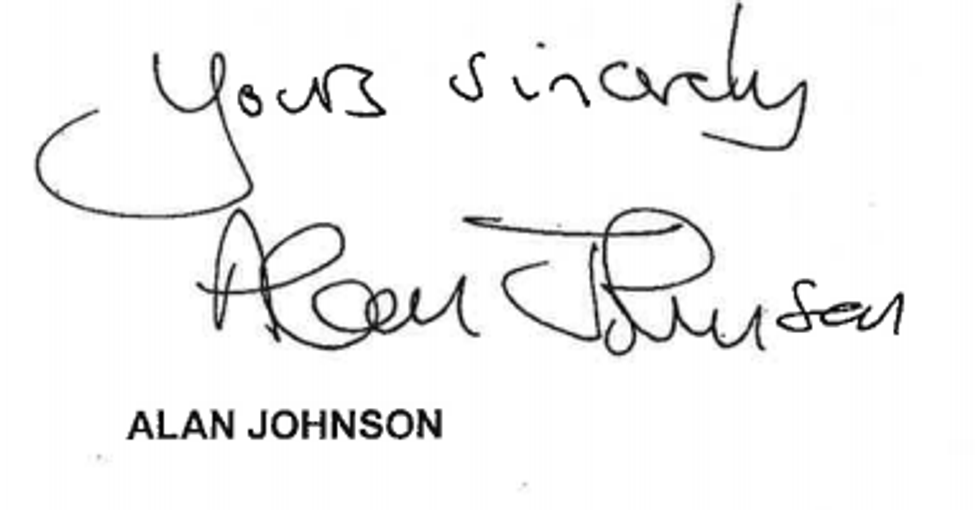 Yours sincerely
Alan Johnson
ALAN JOHNSON